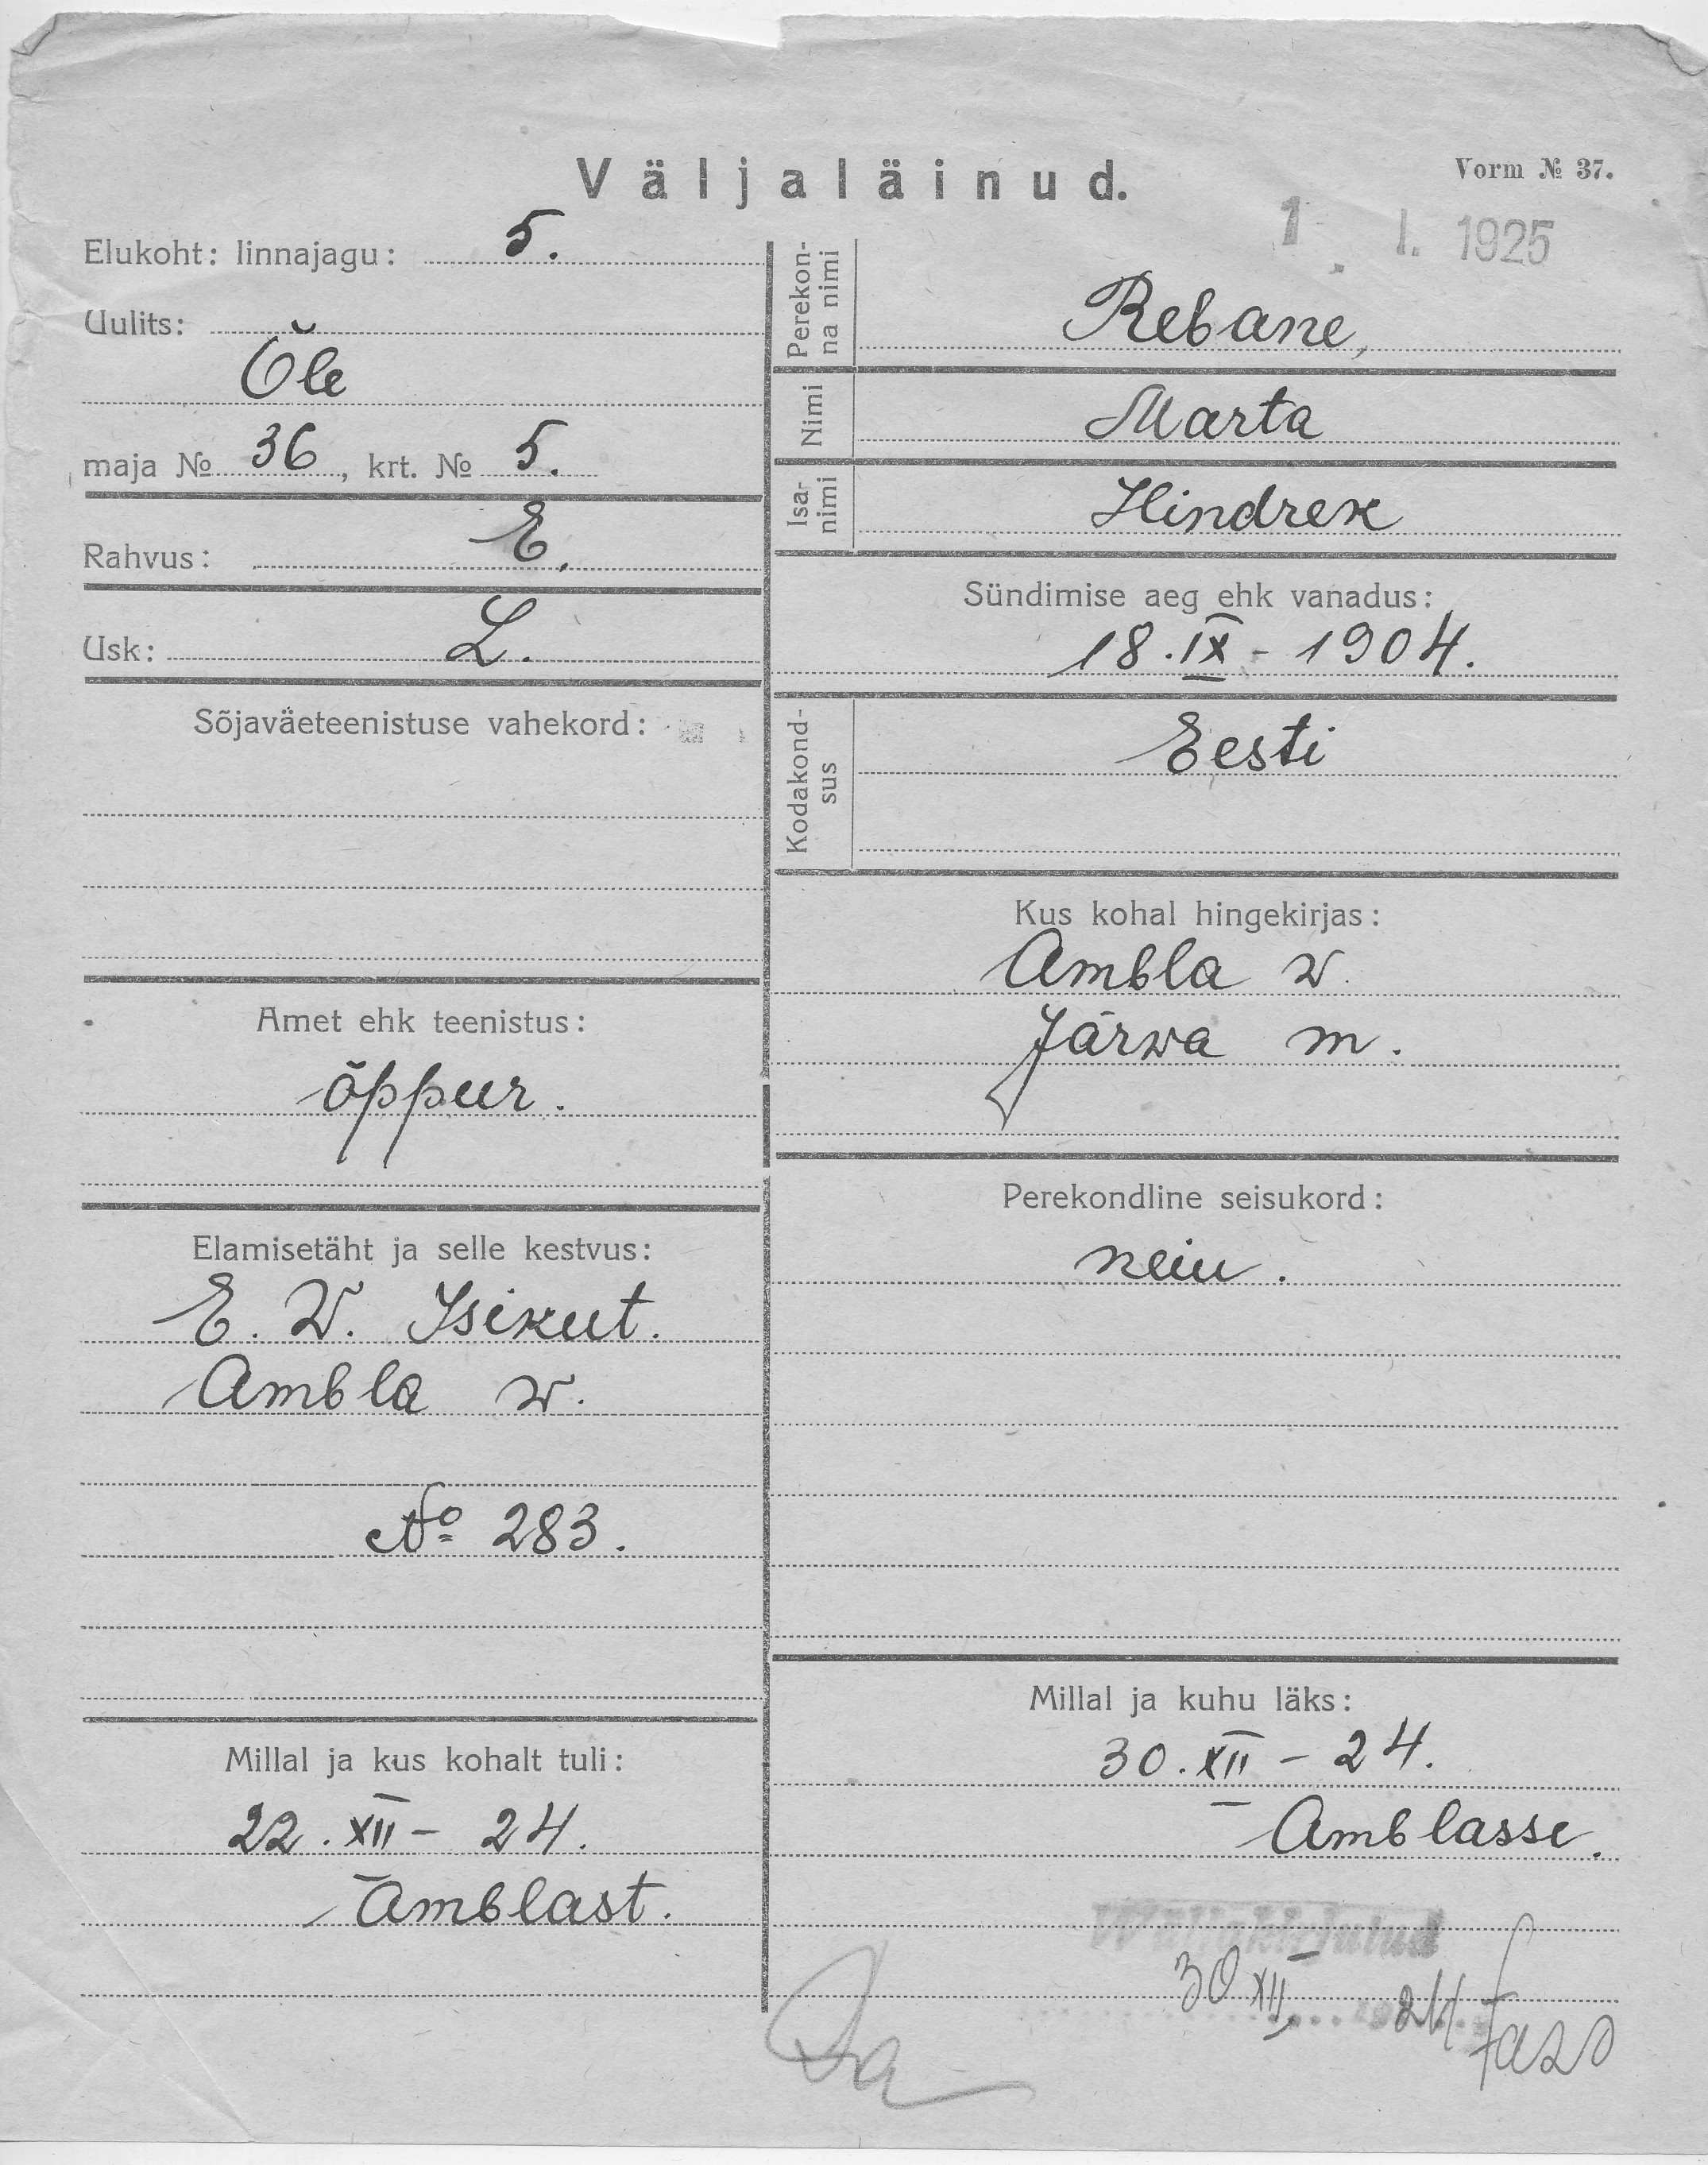 Väljaläinud.
Vorm № 37.
1. I. 1925
Elukoht: linnajagu: 5.
Uulits:
Õle
maja № 36, krt. № 5.
Rahvus: E.
Usk: L.
Sõjaväeteenistuse vahekord:
Amet ehk teenistus:
õppur.
Elamisetäht ja selle kestvus:
E. W. Isikut.
Ambla w.
№ 283.
Millal ja kus kohalt tuli:
22. XII - 24.
Amblast.
Perekon-
na nimi
Rebane,
Nimi
Marta
Isa-
nimi
Hindrek
Sündimise aeg ehk vanadus:
18. IX - 1904.
Kodakond-
sus
Eesti
Kus kohal hingekirjas:
Ambla w.
Järwa m.
Perekondline seisukord:
neiu.
Millal ja kuhu läks:
30. XII - 24.
Amblasse.
Wäljakirjutud
30 XII 24